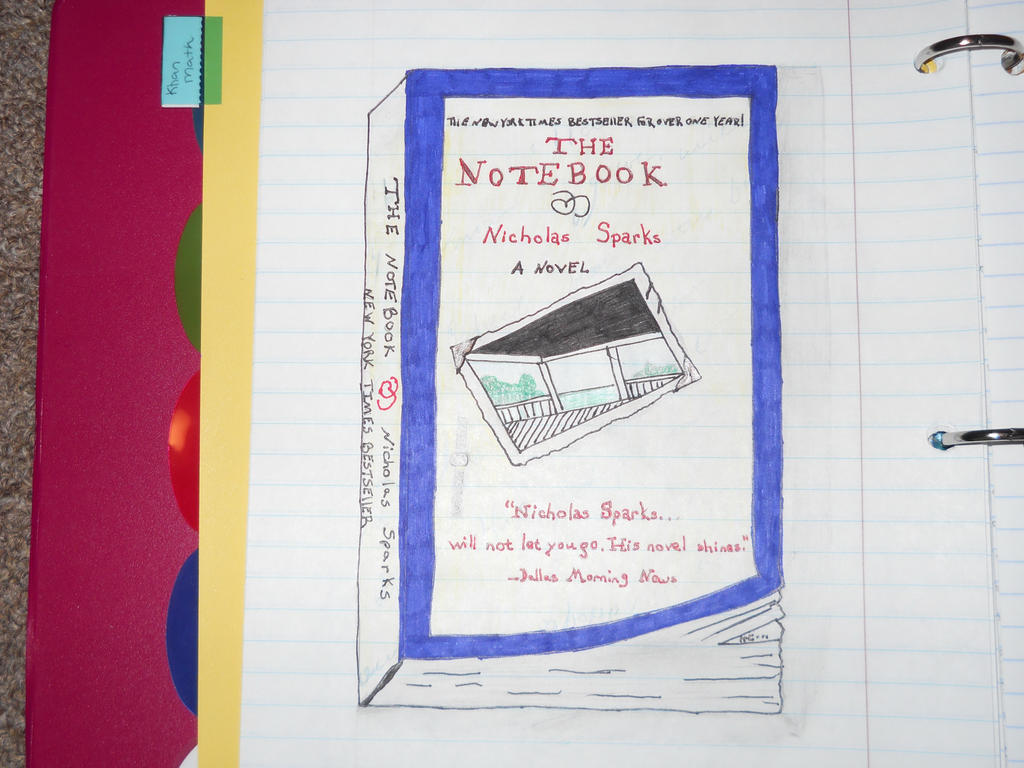 Khan
Math
THE NEW YORK TIMES BESTSELLER FOR OVER ONE YEAR!
THE
NOTEBOOK
Nicholas Sparks
A NOVEL
"Nicholas Sparks...
will not let you go. His novel shines."
-Dallas Morning News
THE NOTEBOOK Nicholas Sparks
NEW YORK TIMES BESTSELLER